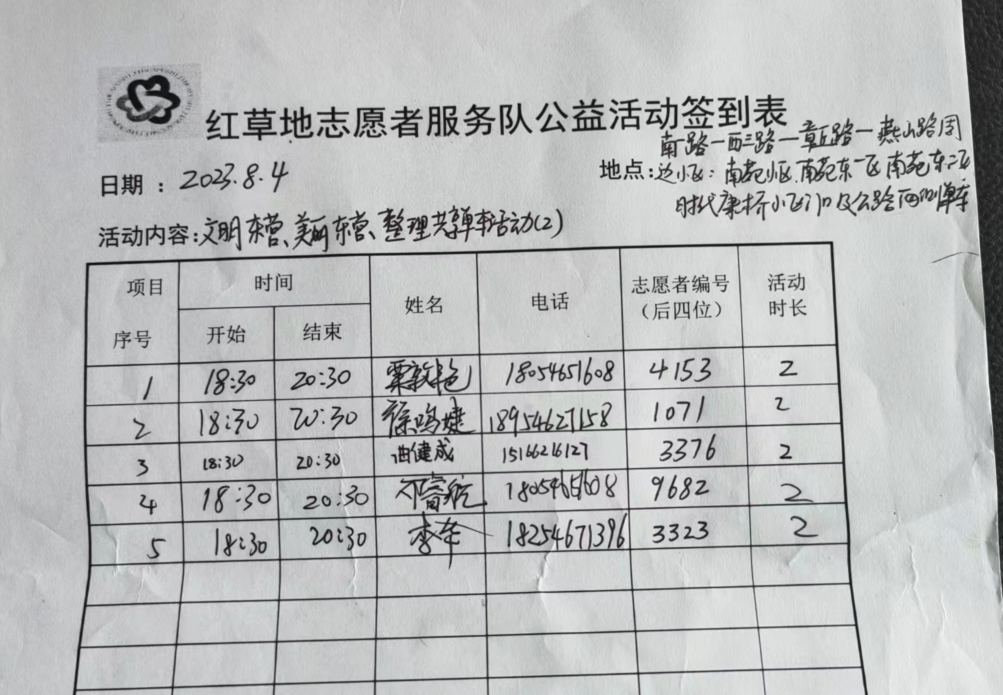 红草地志愿者服务队公益活动签到表
南一路一西三路一章丘路一燕山路周
日期：2023.8.4
地点:边小区:南苑小区.南苑东一区南苑东二区
时代康桥小区门口及公路两侧单车
活动内容:文明东营、美丽东营、整理共享单车活动(2)
项目 时间 姓名 电话 志愿者编号 活动
（后四位） 时长
序号 开始 结束
1 18:30 20:30 18054651608 4153 2
2 18:30 20:30 徐鸣婕 18954627158 1071 2
3 18:30 20:30 曲健成 15166216127 3376 2
4 18:30 20:30 18054651608 9682 2
5 18:30 20:30 李华 18254671396 3323 2